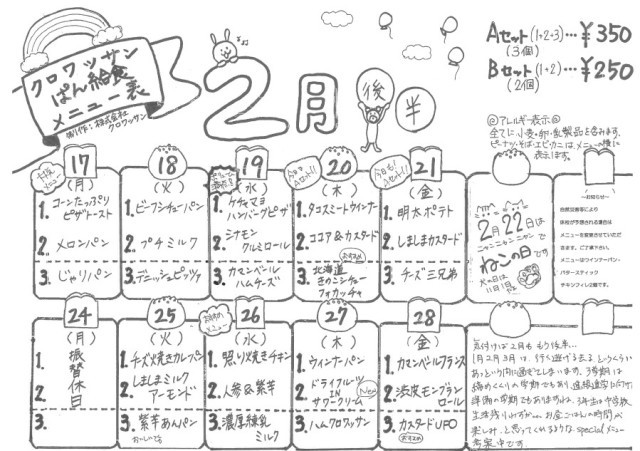 クロワッサン
ぱん給食
メニュー表
制作：株式会社
クロワッサン
2月
後半
Aセット(1+2+3)…¥350
(3個)
Bセット(1+2)…¥250
(2個)
@アレルギー表示@
全てに小麦・卵・乳製品を含みます。
ピーナツ・そば・エビ・カニは、メニューの横に
表示します。
17
(月)
1. コーンたっぷり
ピザトースト
2. メロンパン
3. じゃりパン
18
(火)
1. ビーフシチューパン
2. プチミルク
3. デニッシュピッツァ
19
(水)
1. ケチャマヨ
ハンバーグピザ
2. シナモン
クルミロール
3. カマンベール
ハムチーズ
20
(木)
1. タコスミートウインナー
2. ココア&カスタード
おすすめ
3. 北海道
きのこシチュー
フォカッチャ
21
(金)
1. 明太ポテト
2. しましまカスタード
3. チーズ三兄弟
2月22日は
ニャンニャンニャンで
ねこの日です
犬の日は
11日1月
～お知らせ～
自然災害等により
休校が予想される場合は
メニューを変更させていただき
ます。ご了承下さい。
メニューはウインナーパン・
バタースティック
チキンフィレ2個です。
24
(月)
1. 振
2. 替
休
日
3.
25
(火)
1. チーズ焼きカレーパン
2. しましまミルク
アーモンド
3. 紫芋あんパン
おいしいです
おすすめ
メニュー
26
(水)
1. 照り焼きチキン
2. 人参&紫芋
3. 濃厚練乳
ミルク
27
(木)
1. ウィンナーパン
2. ドライフルーツ
IN
サワークリーム
New
3. ハムクロワッサン
28
(金)
1. カマンベールフランス
2. 渋皮モンブラン
ロール
3. カスタードUFO
おすすめ
気付けば2月ももう後半…
1月2月3月は、行く逃げる去るというくらい
あっという間に過ぎてしまいます。3学期は
締めくくりの学期でもあり、進級進学に向けた
準備の学期でもありますね。3年生は中学校
楽しみ、と思ってくれるようなspecialメニュー
考案中です。